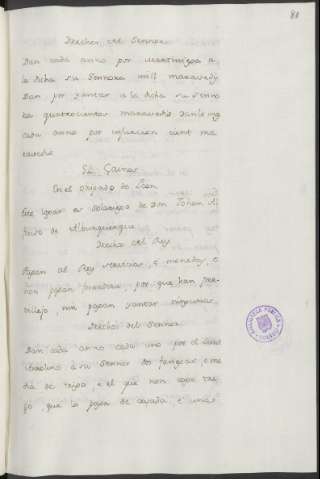 81
Derechos del Sennor
Dan cada anno por martiniega a
la dicha su Sennora mill maravedis
Dan por yantar a la dicha su Senno
ra quatrocientos maravedis danle mas
cada anno por infurcion cient ma
ravedis
Sa Gaines
En el obispado de Leon
Este logar es solariego de Don Johan Al
fonso de Alburquerque
Derechos del Rey
Pagan al Rey servicios, e monedas e
non pagan fonsadera, por que han pre
villejo, nin pagan yantar ninguna.
Derechos del Sennor
Dan cada anno cada uno por el
a su Sennor dos fanegas, e me
dia de trigo, e el que non coge tri
go, que lo paga de cevada, e